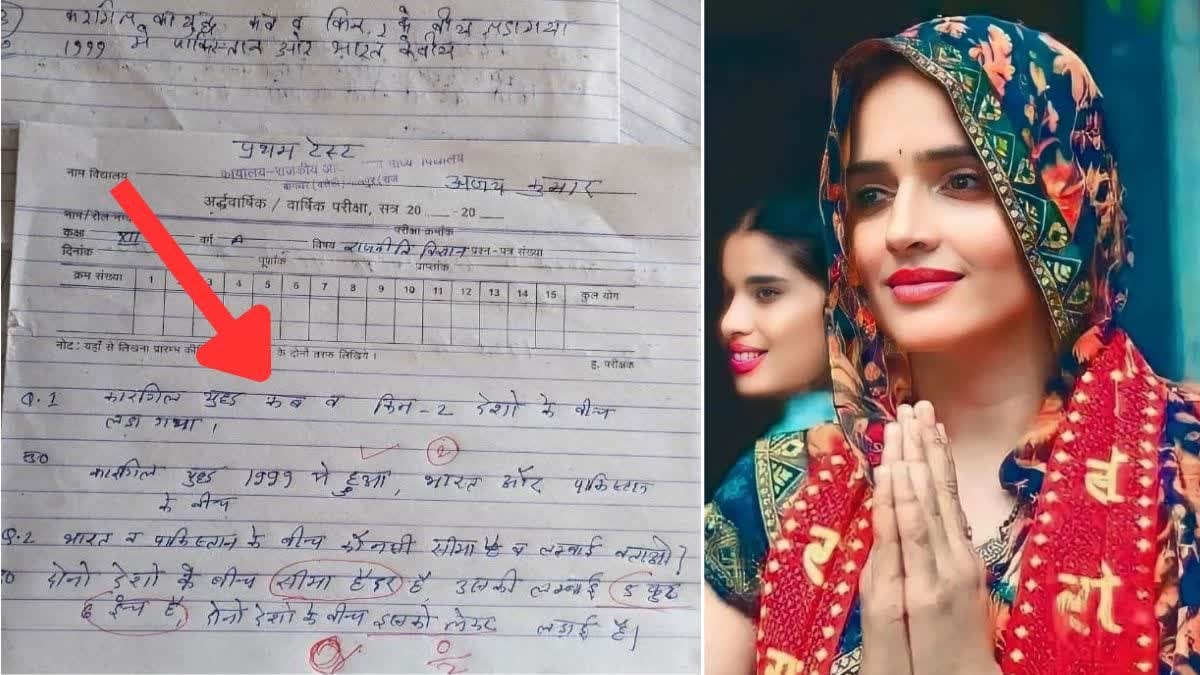 कारगिल का युद्ध कब व किन-2 के बीच लडा गया
1999 मे पाकिस्तान और भारत के बीच
प्रथम टेस्ट
नाम विद्यालय
कार्यालय-राजकीय आ
अजय कुमार
अर्द्धवार्षिक / वार्षिक परीक्षा, सत्र 20 ___ -20 ___
नाम/रोल
परीक्षा क्रमांक
कक्षा XII वर्ग A विषय राजनीति विज्ञान प्रश्न-पत्र संख्या
दिनांक पूर्णांक प्राप्तांक
क्रम संख्या 1 3 4 5 6 7 8 9 10 11 12 13 14 15 कुल योग
नोट : यहाँ से लिखना प्रारम्भ के दोनो तरफ लिखिये ।
ह. परीक्षक
Q.1 कारगिल युध्द कब व किन-2 देशो के बीच
लड़ा गया ।
2
उ0
कारगिल युध्द 1999 मे हुआ, भारत और पाकिस्तान
के बीच
Q.2 भारत व पाकिस्तान के बीच कौनसी सीमा है व लम्बाई बताओ?
दोनो देशो के बीच सीमा हैदर है, उसकी लम्बाई 5 फुट
6 इंच है, दोनो देशो के बीच इसको लेकर लड़ाई है।
0
0/2